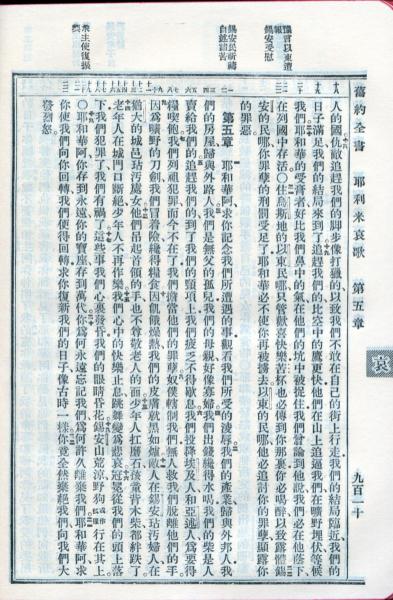 舊約全書　耶利米哀歌　第五章　九百一十
哀
豫言以東遭報
錫安受慰
錫安民祈禱
自述諸苦
人的仇敵追趕我們的脚步像打獵的以致我們不敢在自己的街上行走我們的結局臨近我們的
日子滿足我們的結局來到了追趕我們的比空中的鷹更快他們在山上追逼我們在曠野埋伏等候
我們耶和華的受膏者好比我們鼻中的氣在他們的坑中被捉住我們曾論到他說我們必在他蔭下
在列國中存活○住烏斯地的以東民哪只管歡喜快樂苦杯也必傳到你那裏你必喝醉以致露體錫
安的民哪你罪孽的刑罰受足了耶和華必不使你再被擄去以東的民哪他必追討你的罪孽顯露你
的罪惡
第五章　耶和華阿求你記念我們所遭遇的事觀看我們所受的凌辱我們的產業歸與外邦人我
們的房屋歸與外路人我們是無父的孤兒我們的母親好像寡婦我們出錢纔得水喝我們的柴是人
賣給我們的追趕我們的到了我們的頸項上我們疲乏不得歇息我們投降埃及人和亞述人爲要得
糧喫飽我們列祖犯罪而今不在了我們擔當他們的罪孽奴僕轄制我們無人救我們脫離他們的手
因爲曠野的刀劍我們冒着險纔得糧食因飢餓燥熱我們的皮膚就黑如爐敵人在錫安玷污婦人在
猶大的城邑玷污處女他們吊起首領的手也不尊敬老人的面少年人扛磨石孩童背木柴都絆跌了
老年人在城門口斷絕少年人不再作樂我們心中的快樂止息跳舞變爲悲哀冠冕從我們的頭上落
下我們犯罪了我們有禍了這些事我們心裏發昏我們的眼睛昏花錫安山荒涼野狗或作狐狸行在其上
○耶和華阿你存到永遠你的寶座存到萬代你爲何永遠忘記我們爲何許久離棄我們耶和華阿求
你使我們向你回轉我們便得回轉求你復新我們的日子像古時一樣你竟全然棄絕我們向我們大
發烈怒